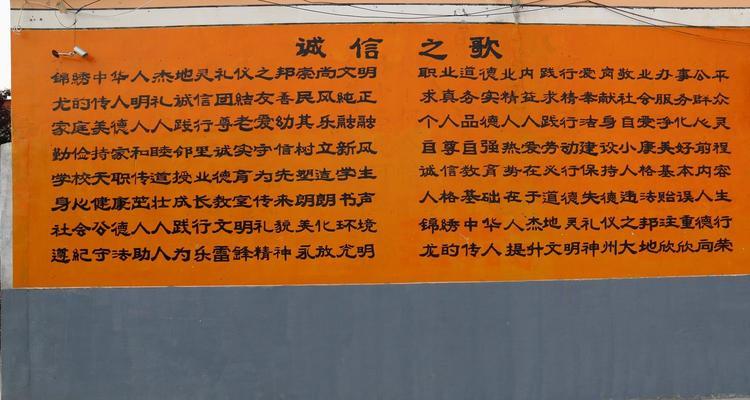 诚信之歌
錦綉中华人杰地灵礼仪之邦崇尚文明
尤的传人明礼诚信团結友善民风純正
家庭美德人人践行尊老爱幼其乐融融
勤俭持家和睦邻里诚实守信树立新风
学校天职传道授业德育为先塑造学生
身心健康茁壮成长教室传来朗朗书声
社会公德人人践行文明礼貌美化环境
遵紀守法助人为乐雷鋒精神永放光明
职业道德业内践行爱岗敬业办事公平
求真务实精益求精奉献社会服务群众
个人品德人人践行洁身自爱净化心灵
自尊自强热爱劳动建设小康美好前程
诚信教育势在必行保持人格基本内容
人格基础在于道德失德违法贻误人生
錦綉中华人杰地灵礼仪之邦注重德行
尤的传人提升文明神州大地欣欣向荣